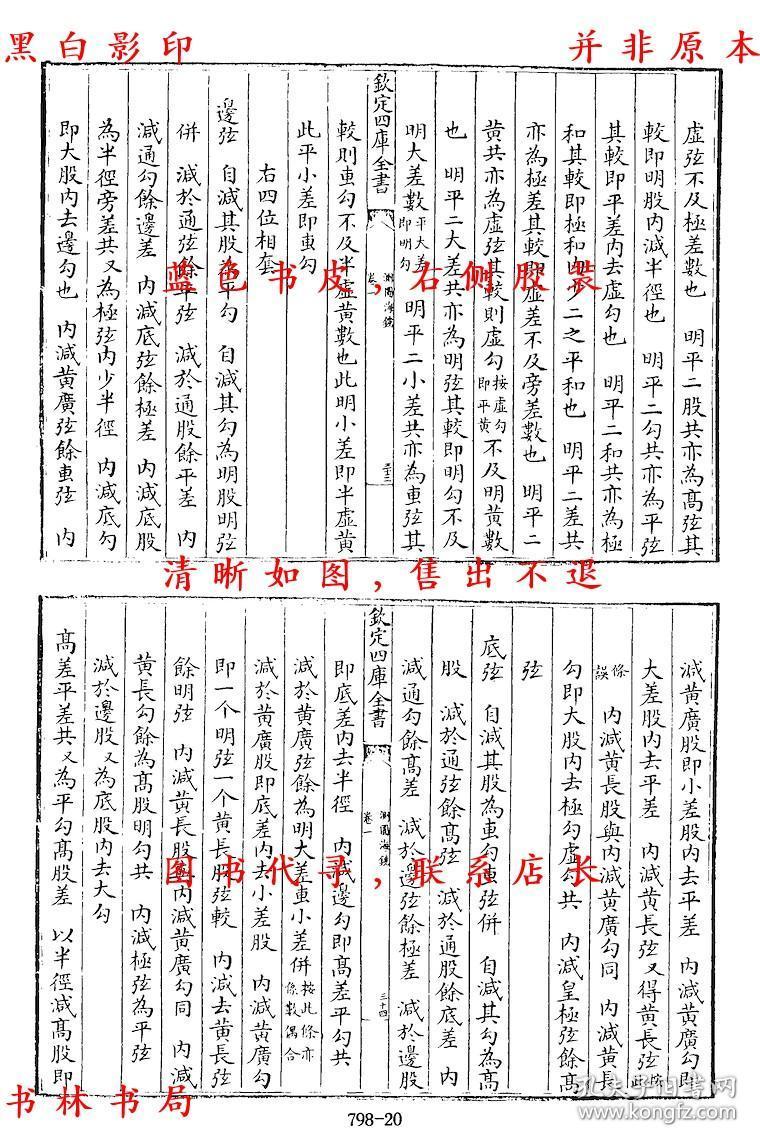 黑白影印
并非原本
虛弦不及極差數也 明平二股共亦為高弦其
較即明股內減半徑也 明平二勾共亦為平弦
其較即平差內去虛勾也 明平二和共亦為極
和其較即極和內少二之平和也 明平二差共
亦為極差其較即虛差不及旁差數也 明平二
黃共亦為虛弦其較則虛勾按虛勾即平黃不及明黃數
也 明平二大差共亦為明弦其較即明勾不及
明大差數平大差即明勾 明平二小差共亦為叀弦其
欽定四庫全書
測圓海鏡
卷一
三十三
較則叀勾不及半虛黃數也此明小差即半虛黃
此平小差即叀勾
右四位相套
邊弦 自減其股為平勾 自減其勾為明股明弦
併 減於通弦餘平弦 減於通股餘平差 內
減通勾餘邊差 內減底弦餘極差 內減底股
為半徑旁差共又為極弦內少半徑 內減底勾
即大股內去邊勾也 內減黃廣弦餘叀弦 內
蓝色书皮,右侧胶装
清晰如图,售出不退
減黃廣股即小差股內去平差 內減黃廣勾即
大差股內去平差 內減黃長弦又得黃長弦此條
誤 內減黃長股與內減黃廣勾同 內減黃長
勾即大股內去極勾虛勾共 內減皇極弦餘高
弦
底弦 自減其股為叀勾叀弦併 自減其勾為高
股 減於通弦餘高弦 減於通股餘底差 內
減通勾餘高差 減於邊弦餘極差 減於邊股
欽定四庫全書
測圓海鏡
卷一
三十四
即底差內去半徑 內減邊勾即高差平勾共
減於黃廣弦餘為明大差叀小差併按此條亦條數偶合
減於黃廣股即底差內去小差股 內減黃廣勾
即一个明弦一个黃長股弦較 內減去黃長弦
餘明弦 內減黃長股與內減黃廣勾同 內減
黃長勾餘為高股明勾共 內減極弦為平弦
減於邊股又為底股內去大勾
高差平差共又為平勾高股差 以半徑減高股即
图书代寻,联系店长
书林书局
798-20
孔夫子旧书网
www.kongfz.com